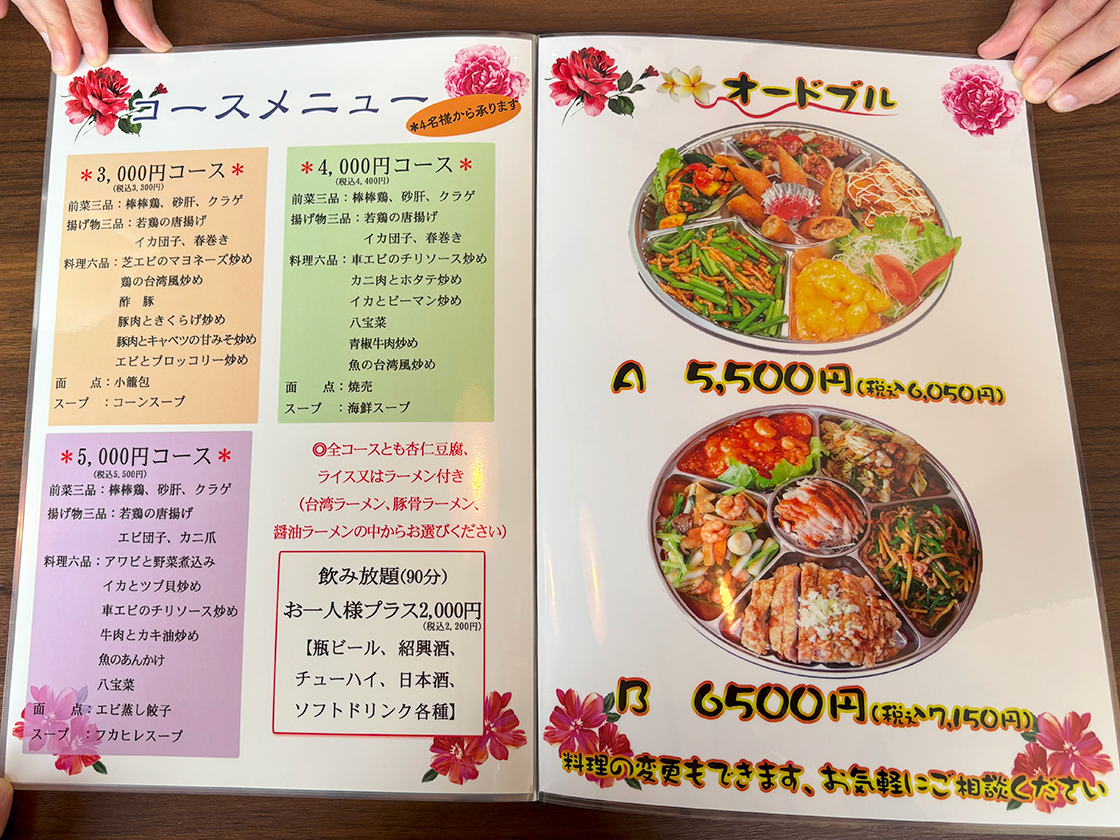 コースメニュー
*4名様から承ります
*3,000円コース*
(税込3,300円)
前菜三品:棒棒鶏、砂肝、クラゲ
揚げ物三品:若鶏の唐揚げ
イカ団子、春巻き
料理六品:芝エビのマヨネーズ炒め
鶏の台湾風炒め
酢 豚
豚肉ときくらげ炒め
豚肉とキャベツの甘みそ炒め
エビとブロッコリー炒め
面 点:小籠包
スープ :コーンスープ
*4,000円コース*
(税込4,400円)
前菜三品:棒棒鶏、砂肝、クラゲ
揚げ物三品:若鶏の唐揚げ
イカ団子、春巻き
料理六品:車エビのチリソース炒め
カニ肉とホタテ炒め
イカとピーマン炒め
八宝菜
青椒牛肉炒め
魚の台湾風炒め
面 点:焼売
スープ :海鮮スープ
*5,000円コース*
(税込5,500円)
前菜三品:棒棒鶏、砂肝、クラゲ
揚げ物三品:若鶏の唐揚げ
エビ団子、カニ爪
料理六品:アワビと野菜煮込み
イカとツブ貝炒め
車エビのチリソース炒め
牛肉とカキ油炒め
魚のあんかけ
八宝菜
面 点:エビ蒸し餃子
スープ :フカヒレスープ
◎全コースとも杏仁豆腐、
ライス又はラーメン付き
(台湾ラーメン、豚骨ラーメン、
醤油ラーメンの中からお選びください)
飲み放題(90分)
お一人様プラス2,000円
(税込2,200円)
【瓶ビール、紹興酒、
チューハイ、日本酒、
ソフトドリンク各種】
オードブル
A 5,500円(税込6,050円)
B 6500円(税込7,150円)
料理の変更もできます、お気軽にご相談ください